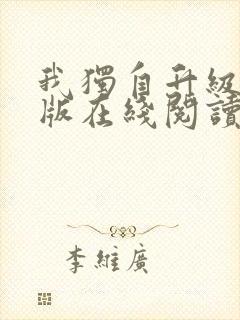 我獨自升級
版在綫閱讀
李維廣